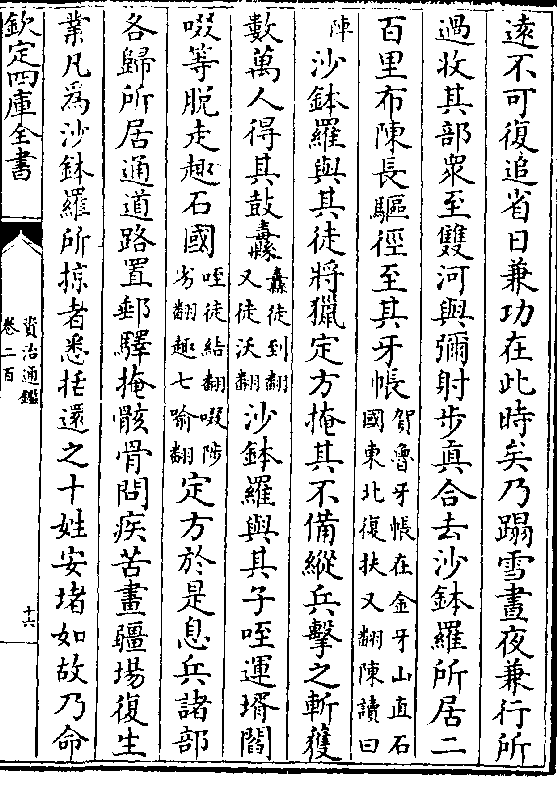 遠不可復追省日兼功在此時矣乃蹋雪晝夜兼行所
過收其部衆至雙河與彌射步真合去沙鉢羅所居二
百里布陳長驅徑至其牙帳賀魯牙帳在金牙山直石國東北復扶又翻陳讀曰
陣沙鉢羅與其徒將獵定方掩其不備縱兵擊之斬獲
數萬人得其鼓纛纛徒到翻又徒沃翻沙鉢羅與其子咥運壻閻
啜等脫走趣石國咥徒結翻啜陟劣翻趣七喻翻定方於是息兵諸部
各歸所居通道路置郵驛掩骸骨問疾苦畫疆場復生
業凡爲沙鉢羅所掠者悉括還之十姓安堵如故乃命
欽定四庫全書
資治通鑑
卷二百
十六